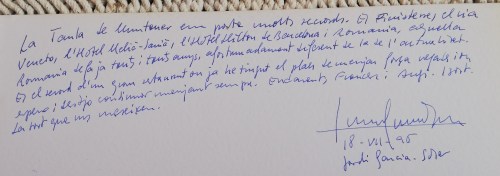 La Taula de Muntaner em porta molts records. El Finisterre, el via
Veneto, l'Hotel Melià-Sarrià, l'Hotel Hilton de Barcelona i Romania, aquella
Romania de fa ja tants i tants anys, afortunadament diferent de la de l'actualitat.
És el record d'un gran restaurant on ja he tingut el plaer de menjar força vegades i on
espero i desitjo continuar menjant sempre. Endavant Francesc i Àngel. Sort.
La sort que us mereixeu.
18-VII-96
Jordi Garcia-Soler